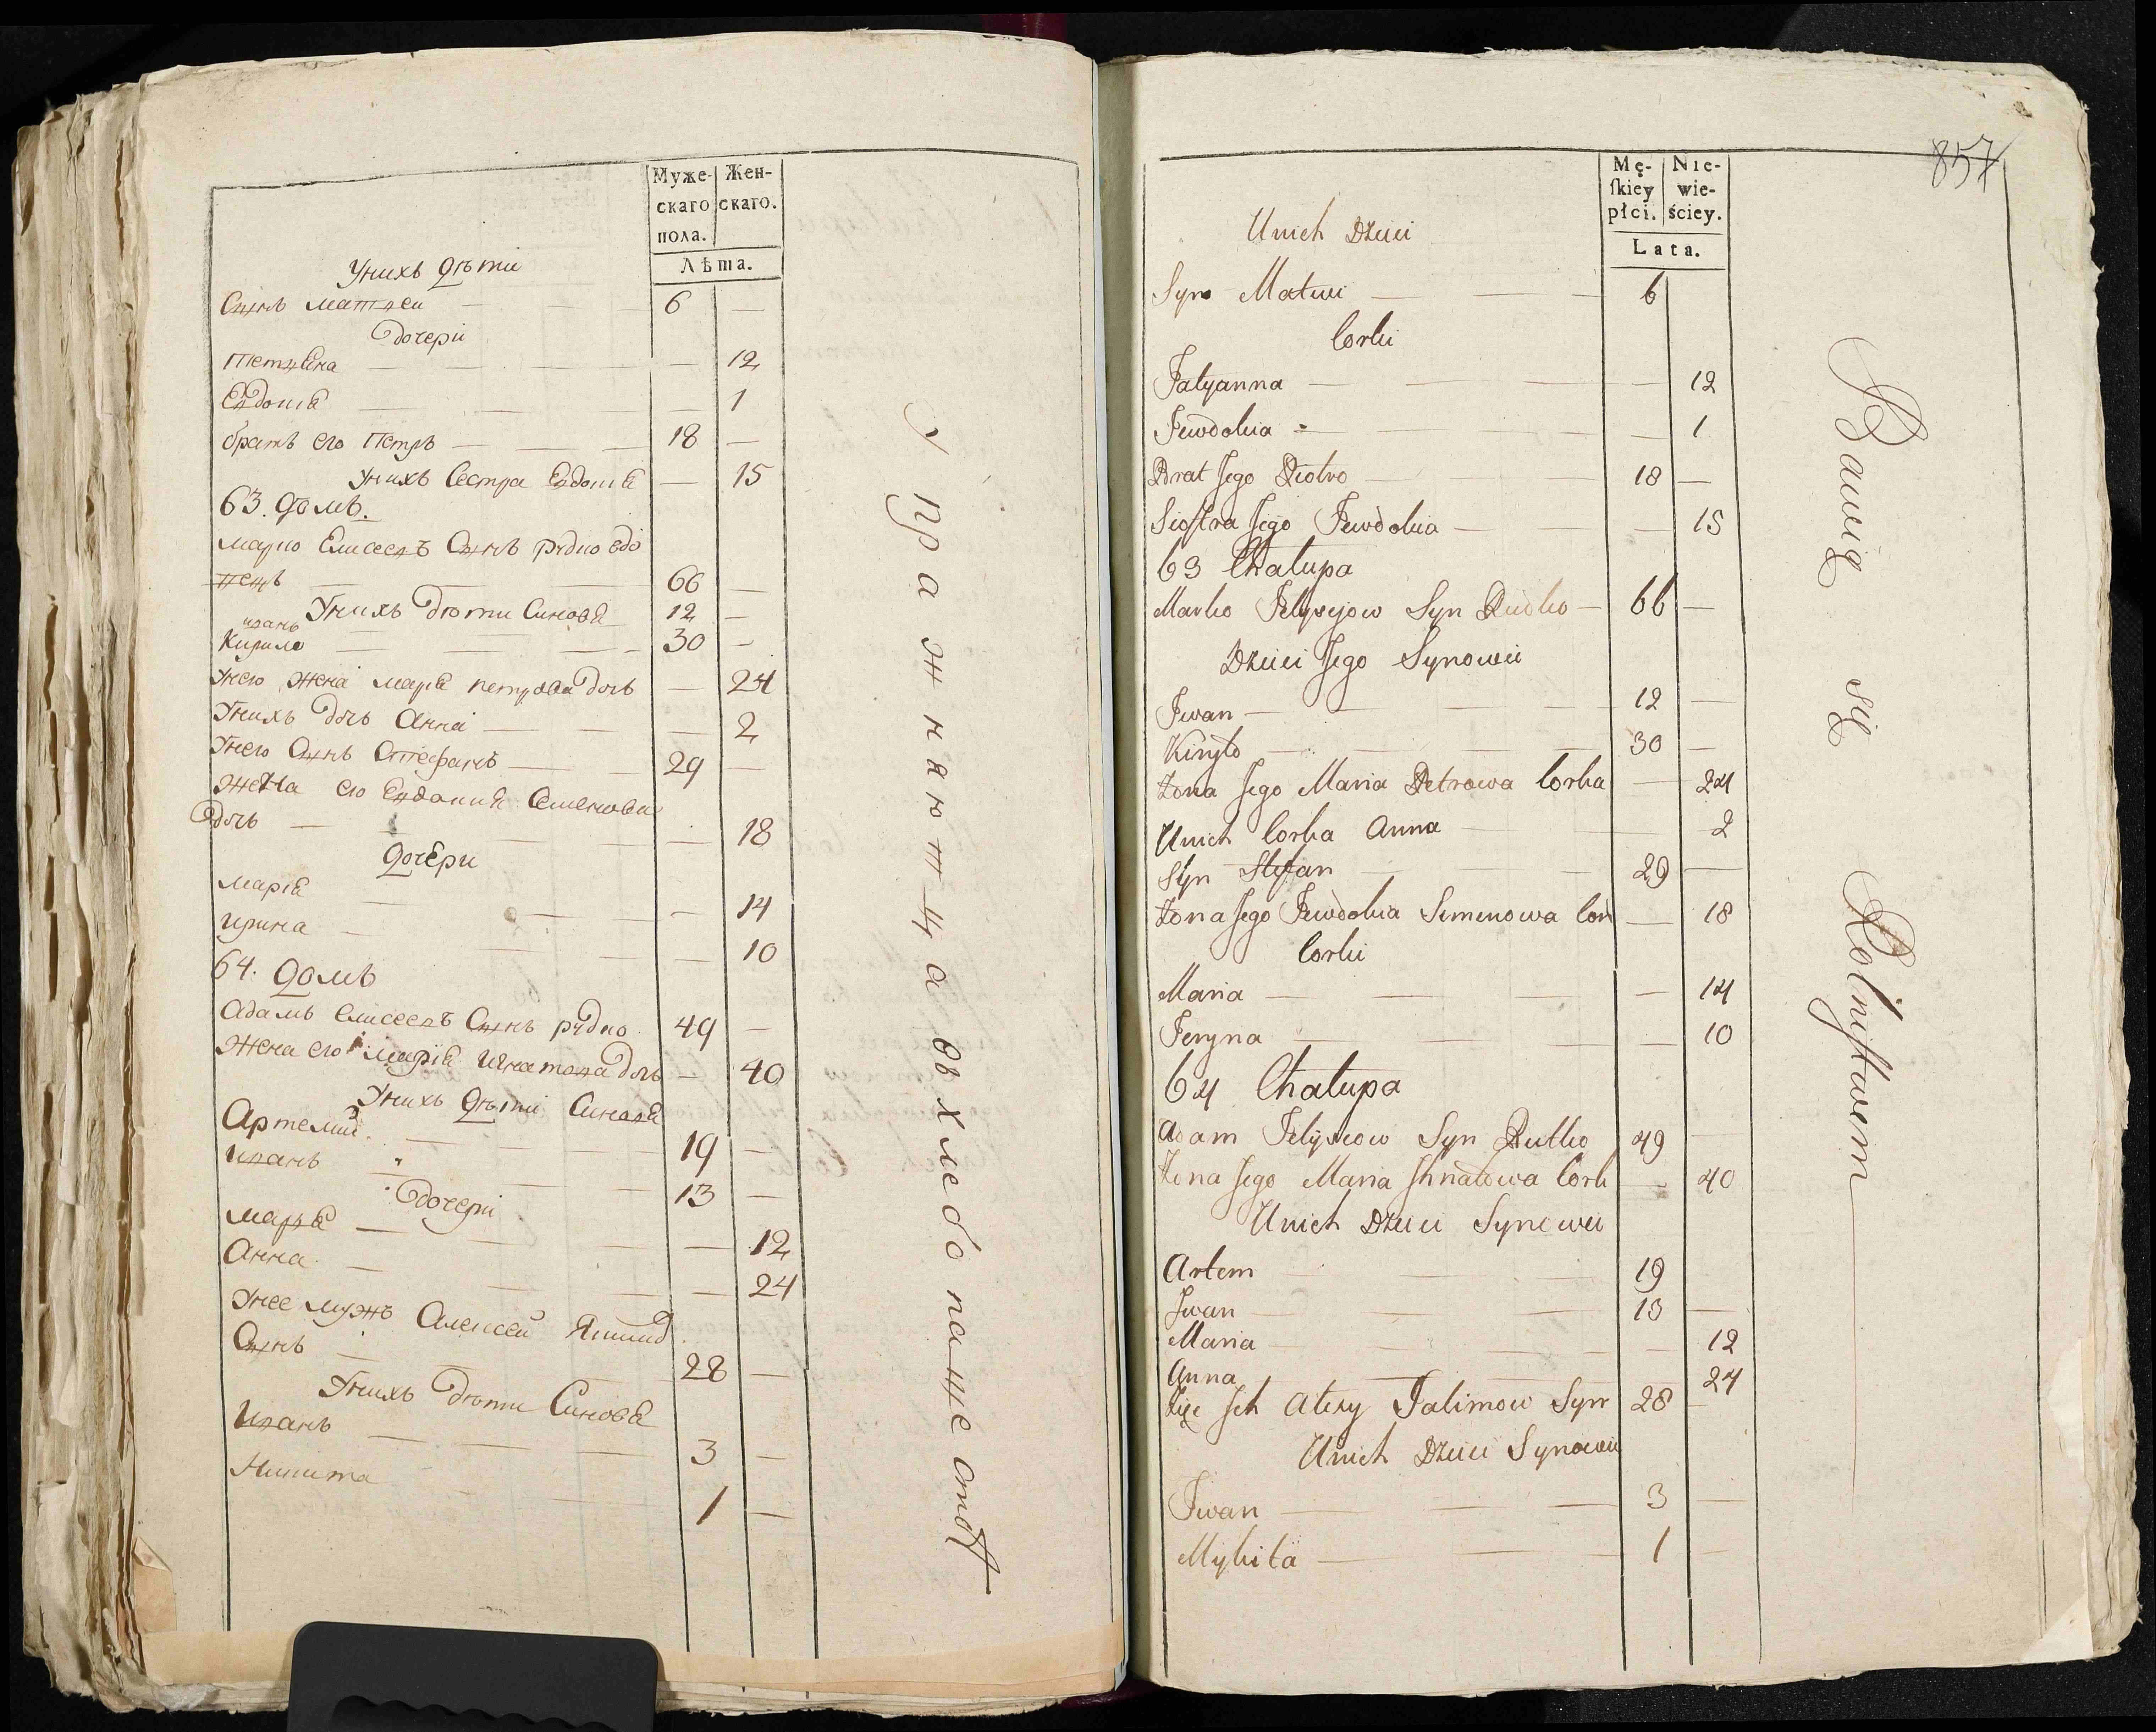 Муже-
скаго
пола.
Жен-
скаго.
Лѣта.
Унихъ Дѣти
Сынъ Матвеи — 6 —
Дочери
Тетяна — — 12
Евдокиѣ — — 1
братъ его Петръ — 18 —
Унихъ Сестра Евдокиѣ — 15
63. Домъ.
Марко Елисеевъ Сынъ рудко вдо
вецъ — 66 —
Унихъ Дѣти Синовѣ
иванъ 12 —
Кирило — 30 —
Унего жена Мариѣ петрова дочь — 24
Унихъ дочь Анна — — 2
Унего Сынъ Стефанъ — 29 —
Жена его Евдокиѣ Семенова
Дочь — — 18
Дочери
Мариѣ — — 14
Ирина — — 10
64. Домъ
Адамъ Елисеевъ Сынъ рудко 49 —
Жена его Мариѣ Игнатова дочь — 40
Унихъ Дѣти Синовѣ
Артемий — 19 —
Иванъ — 13 —
Дочери
Мариѣ — — 12
Анна — — 24
Унее мужъ Алексей
Сынъ — 28 —
Унихъ Дѣти Синовѣ
Иванъ — 3 —
Никита 1 —
Упражняются въ хлебопашестве
857
Mę-
skiey
płci.
Nie-
wie-
ściey.
Lata.
Unich Dzieci
Syn Matwi — 6
Corki
Tatyanna — — 12
Jewdokia — — 1
Brat Jego Piotro — 18 —
Siostra Jego Jewdokia — — 15
63 Chałupa
Marko Jelysejow Syn Rudko — 66 —
Dzieci Jego Synowie
Jwan — 12 —
Kiryło — 30 —
Żona Jego Maria Petrowa Corka — 24
Unich Corka Anna — 2
Syn Stefan — 29 —
Żona Jego Jewdokia Semenowa Cor — 18
Corki
Maria — — 14
Jeryna — — 10
64 Chałupa
Adam Jelyseow Syn Rutko 49 —
Żona Jego Maria Jhnatowa Cork — 40
Unich Dzieci Synowie
Artem — 19
Jwan — 13 —
Maria — — 12
Anna — 24
Zięć Jch Alexy Jakimow Syn 28 —
Unich Dzieci Synowie
Jwan — 3 —
Mykita — 1 —
Bawią się Rolnictwem